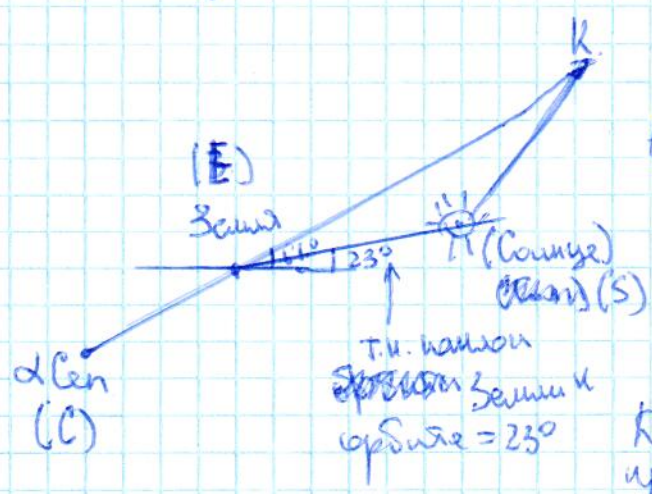 K
(E)
Земля
61° 23°
(Солнце)
(S)
αCen
(C)
т.к. наклон
Земли к
орбите = 23°